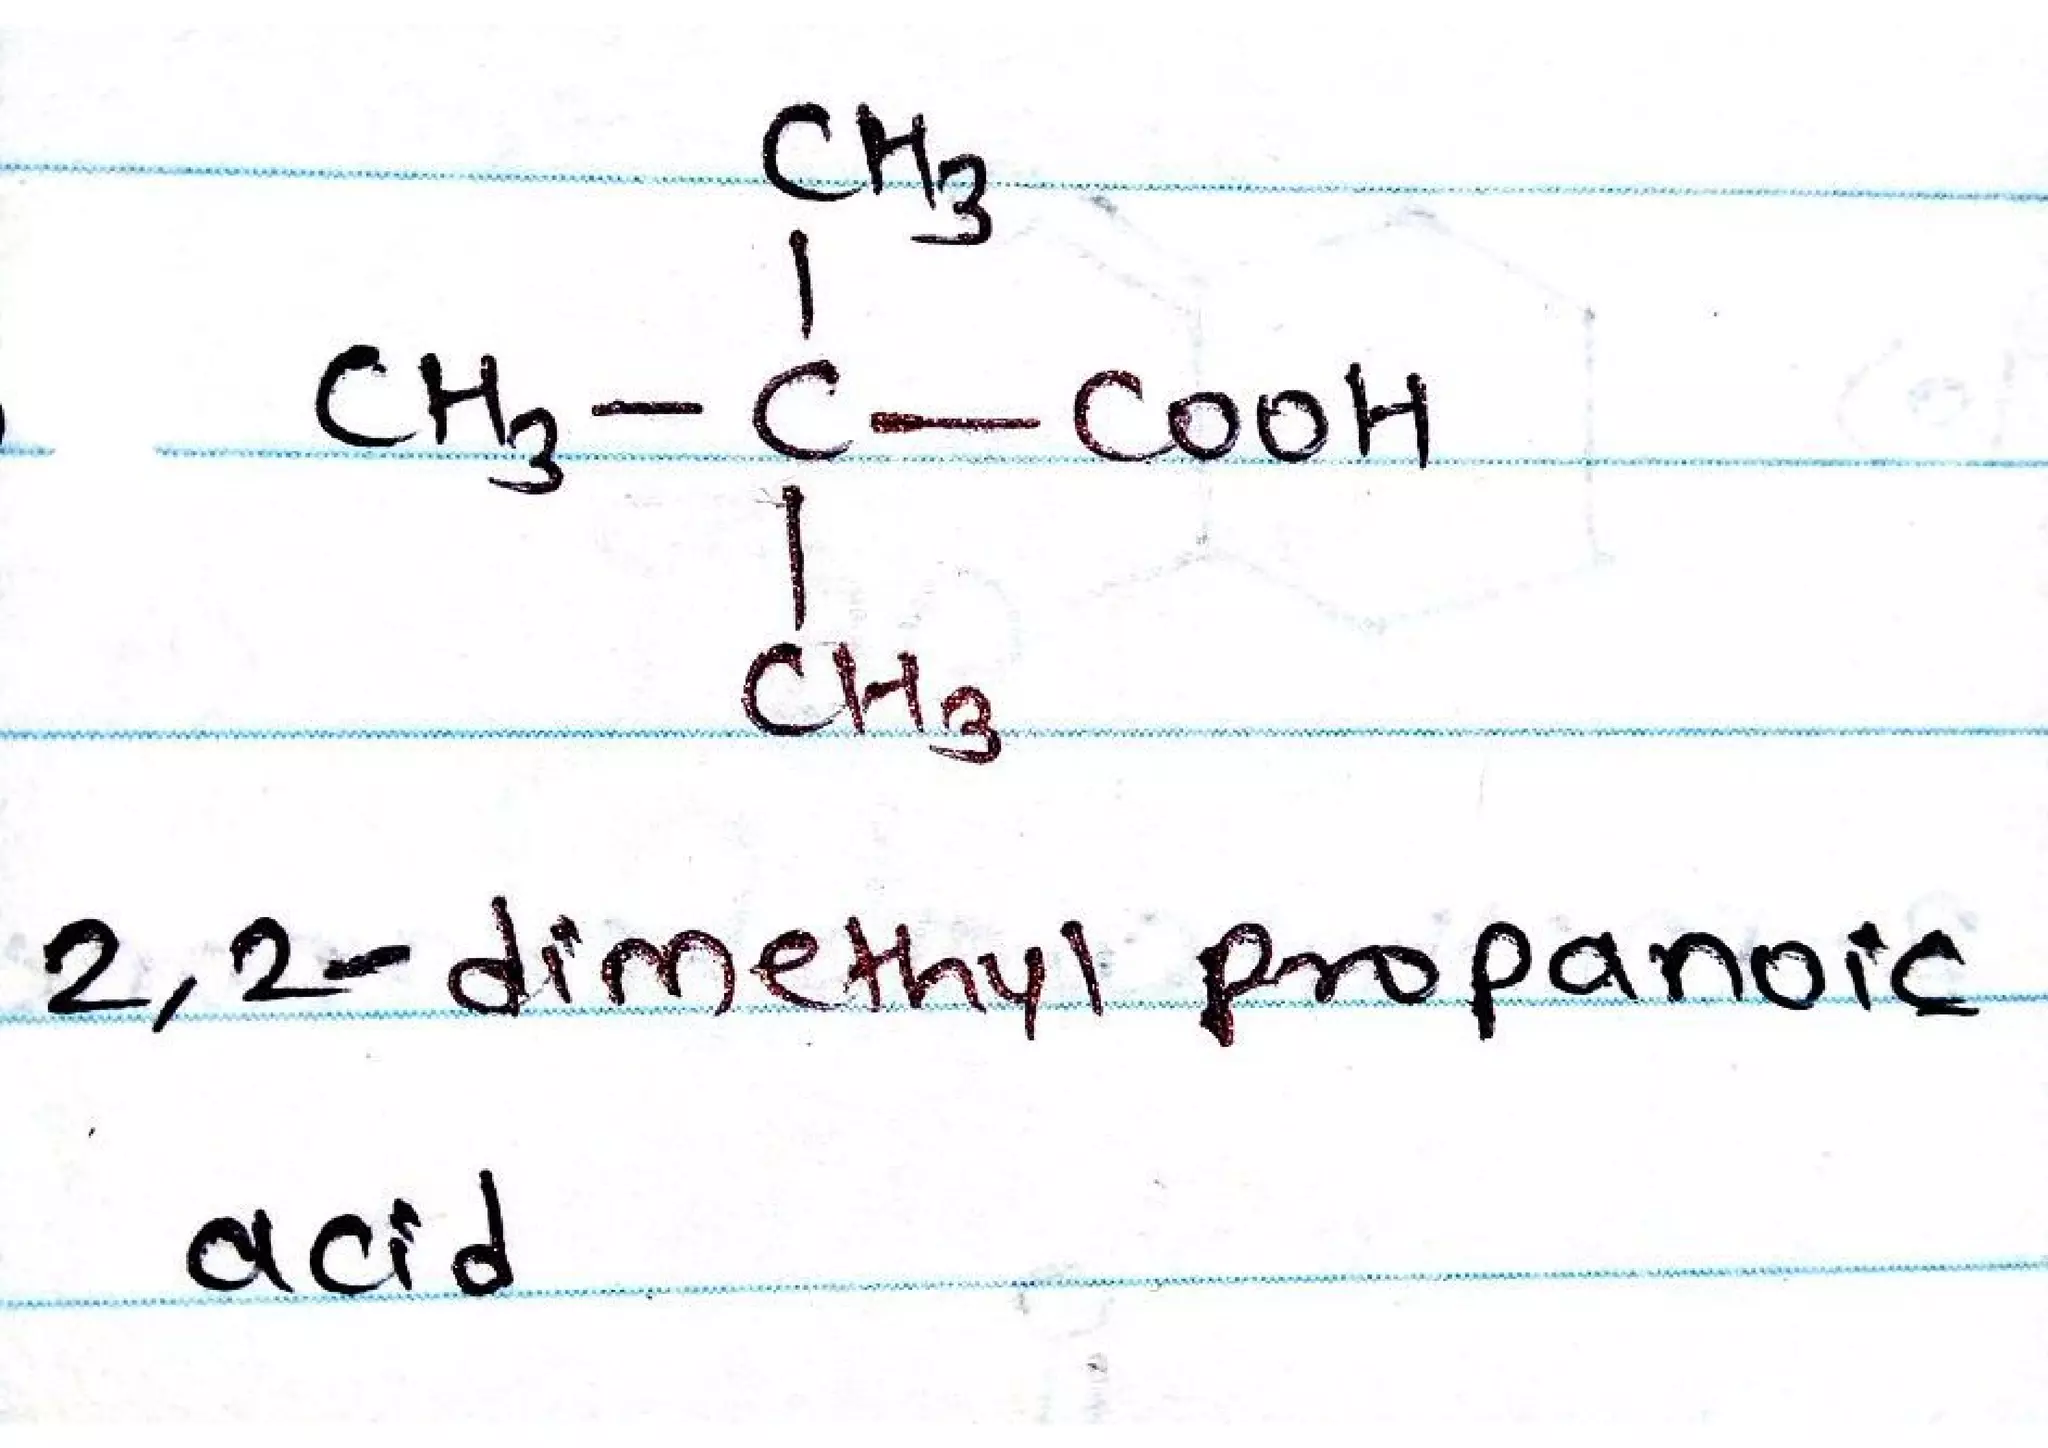 CH3
CH3-C-COOH
CH3
2,2-dimethyl propanoic
acid